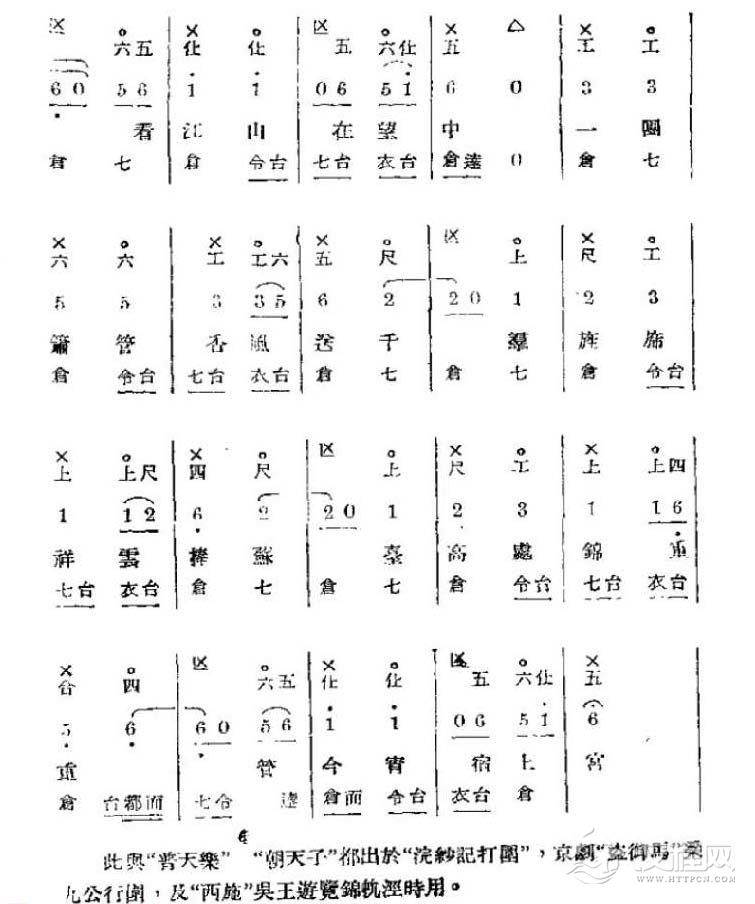 六五 仩 仩 五 六仩 五 工 工
6 0 5 6 1 1 0 6 5 1 6 0 3 3
看 江 山 在 望 中 一 團
倉 七 倉 令台 七台 衣台 倉 0 倉 七
六 六 工 工六 五 尺 上 尺 工
5 5 3 3 5 6 2 2 0 1 2 3
簫 管 香 風 送 千 羣 旌 旆
倉 令台 七台 衣台 倉 七 倉 七 倉 令台
上 上尺 四 尺 上 尺 工 上 上四
1 1 2 6 2 2 0 1 2 3 1 1 6
祥 雲 捧 蘇 臺 高 處 錦 重
七台 衣台 倉 七 倉 七 倉 令台 七台 衣台
合 四 六五 仩 仩 五 六仩 五
5 6 6 0 5 6 1 1 0 6 5 1 6
重 管 今 宵 宿 上 宮
倉 台都而 七令 倉而 令台 衣台 倉
此與“普天樂” “朝天子”都出於“浣紗記打圍”，京劇“盜御馬”梁
九公行圍，及“西施”吳王遊覽錦帆涇時用。